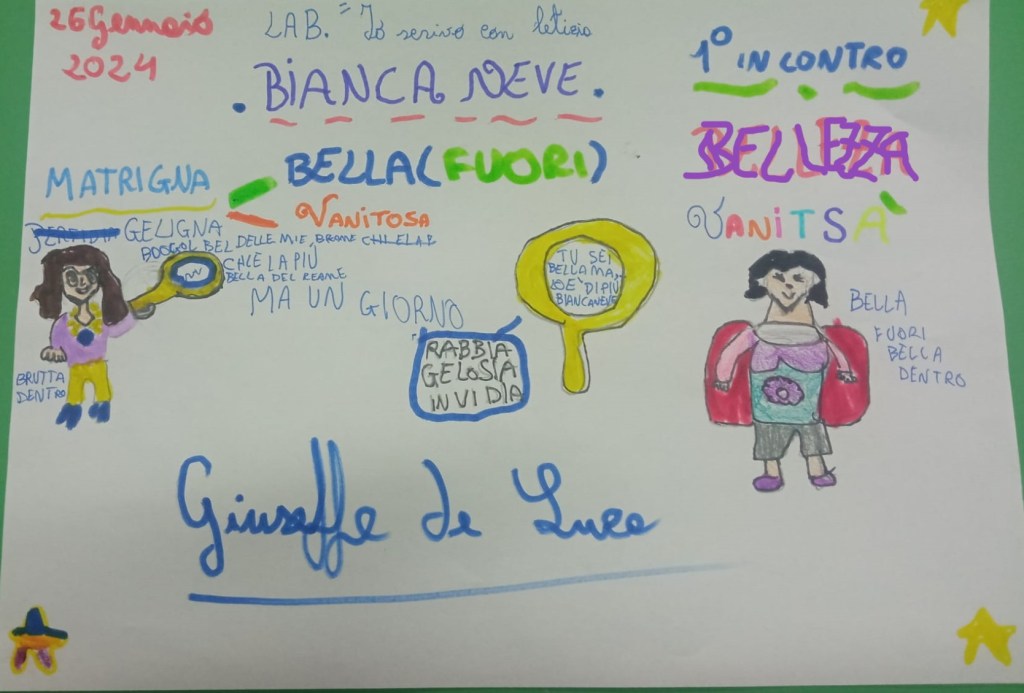 26 Gennaio
2024
LAB. "Io scrivo con letizia
. BIANCA NEVE .
1° INCONTRO
BELLEZZA
VANITSA'
MATRIGNA
BELLA (FUORI)
VANITOSA
GELIGNA
BEL DELLE MIE, BRAME CHI ELAP
CHLE LA PIÙ
BELLA DEL REAME
MA UN GIORNO
BRUTTA
DENTRO
TU SEI
BELLA MA,
DI PIÙ
BIANCANEVE
RABBIA
GELOSIA
INVIDIA
BELLA
FUORI
BELLA
DENTRO
Giuseppe de Luca